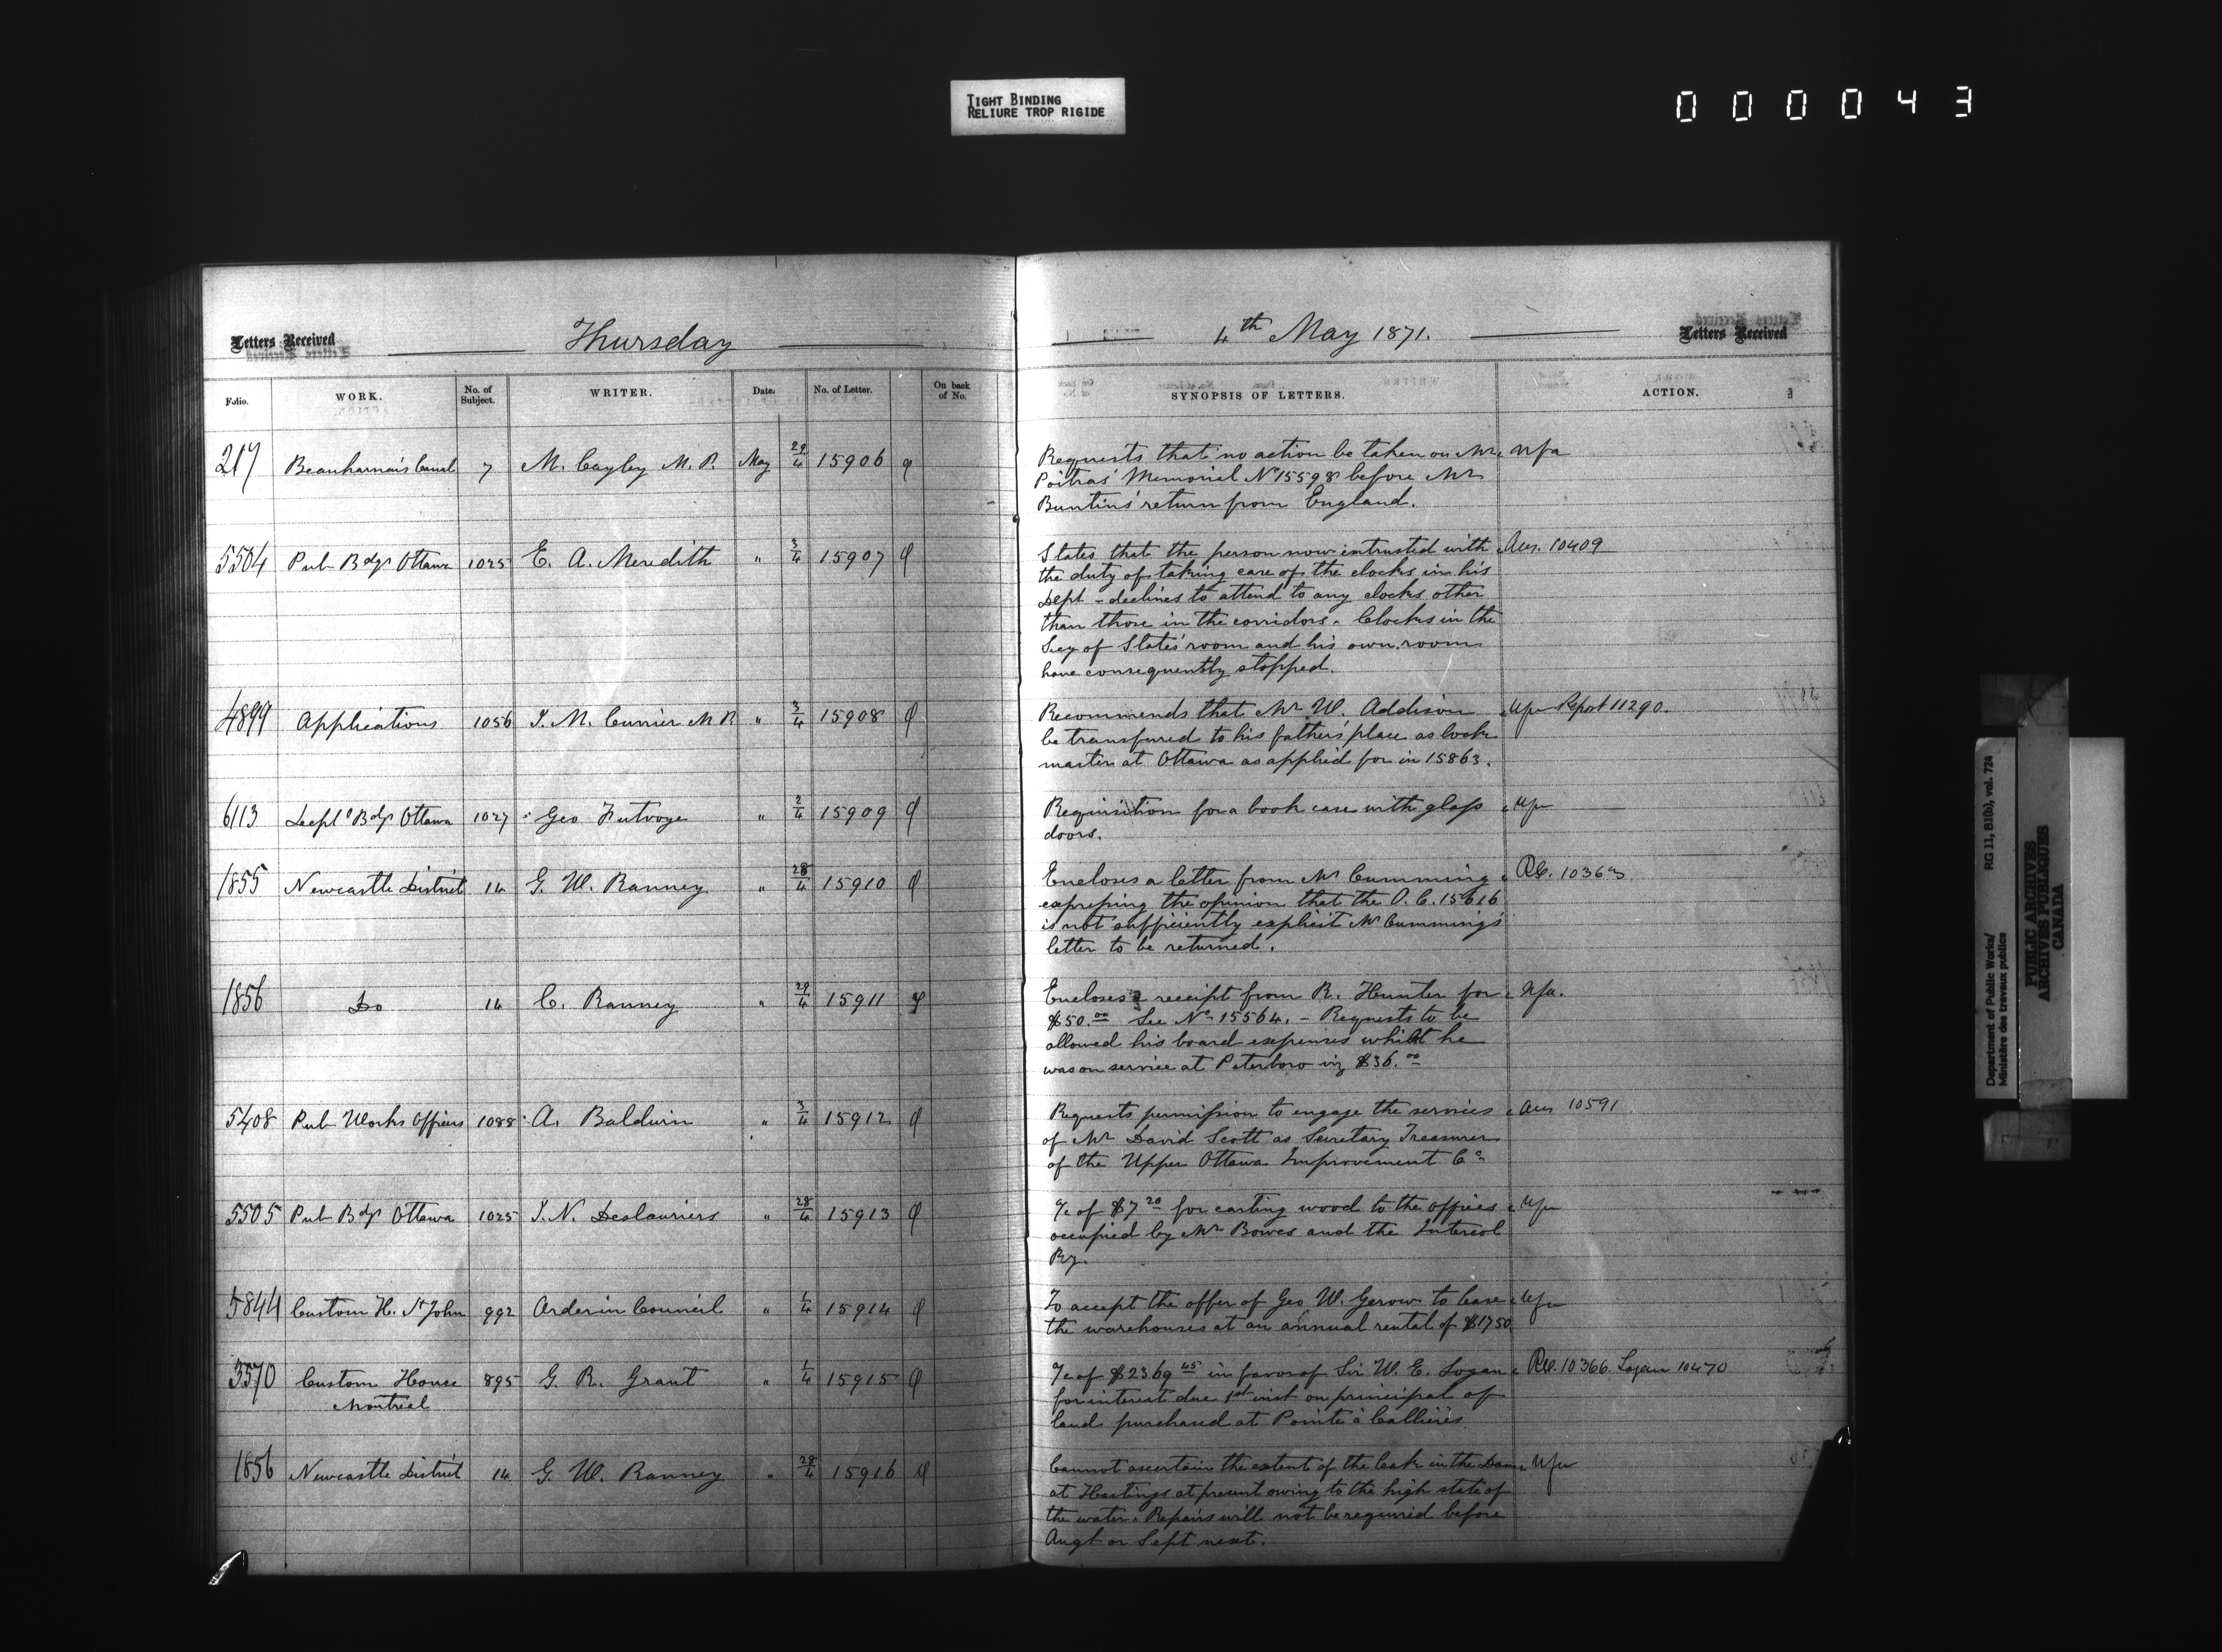 TIGHT BINDING
RELIURE TROP RIGIDE
000043
Letters Received Thursday 4th May 1871. Letters Received
Folio. WORK. No. of Subject. WRITER. Date. No. of Letter. On back of No. SYNOPSIS OF LETTERS. ACTION.
217 Beauharnois Canal 7 M. Cayley M.P. May 29/4 15906 Requests that no action be taken on Mr. Nfa
Poitras' Memorial No 15598 before Mr
Buntin's return from England.
5504 Pub Bdgs Ottawa 1025 E. A. Meredith " 3/4 15907 States that the person now intrusted with Ans. 10409
the duty of taking care of the clocks in his
Dept - declines to attend to any clocks other
than those in the corridors. Clocks in the
Secy of State's room and his own room
have consequently stopped.
4899 Applications 1056 J. M. Currier M P. " 3/4 15908 Recommends that Mr W. Addison Nfa Report 11290.
be transfured to his father's place as lock
master at Ottawa as applied for in 15863.
6113 Deptl Bdgs Ottawa 1027 Geo Futvoye " 2/4 15909 Requisition for a book case with glass Nfa
doors.
1855 Newcastle District 14 G. W. Ranney " 28/4 15910 Encloses a letter from Mr Cumming
expressing the opinion that the O.C. 15616
is not sufficiently explicit Mr Cumming's
letter to be returned.
1856 Do 14 C. Ranney " 29/4 15911 Encloses receipt from R. Hunter for Nfa.
$50.00 See No 15564. - Requests to be
allowed his board expenses whilst he
was on service at Peterboro viz $36.00
5408 Pub Works Officers 1088 A. Baldwin " 3/4 15912 Requests permission to engage the services Ans 10591
of Mr David Scott as Secretary Treasurer
of the Upper Ottawa Improvement Co
5505 Pub Bdgs Ottawa 1025 J. N. Deslauriers " 28/4 15913 a/c of $7.20 for carting wood to the offices Nfa
occupied by Mr Bowes and the Intercol
Ry.
5844 Custom H. St John 992 Order in Council " 1/4 15914 To accept the offer of Geo W. Gerow to lease Nfa
the warehouses at an annual rental of $1750
3570 Custom House 895 G. R. Grant " 1/4 15915 a/c of $2369.45 in favor of Sir W. E. Logan 10366. Logan 10470
Montreal for interest due 1st inst on principal of
land purchased at Pointe à Callières
1856 Newcastle District 14 G. W. Ranney " 29/4 15916 Cannot ascertain the extent of the leak in the Dam Nfa
at Hastings at present owing to the high state of
the water. Repairs will not be required before
Augt or Sept next.
Department of Public Works/ RG 11, B1(b), vol. 724
Ministère des travaux publics
PUBLIC ARCHIVES
ARCHIVES PUBLIQUES
CANADA